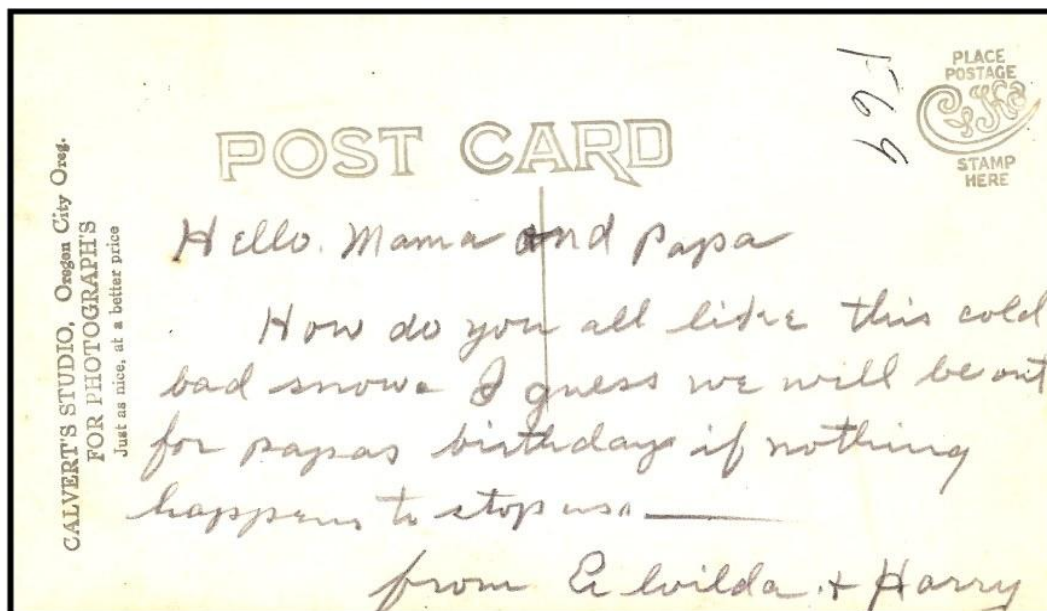 CALVERT'S STUDIO, Oregon City Oreg.
FOR PHOTOGRAPH'S
Just as nice, at a better price
POST CARD
F69
PLACE
POSTAGE
STAMP
HERE
Hello. Mama and Papa
How do you all like this cold
bad snow. I guess we will be out
for papas birthday if nothing
happens to stop us.
from Elwilda. + Harry